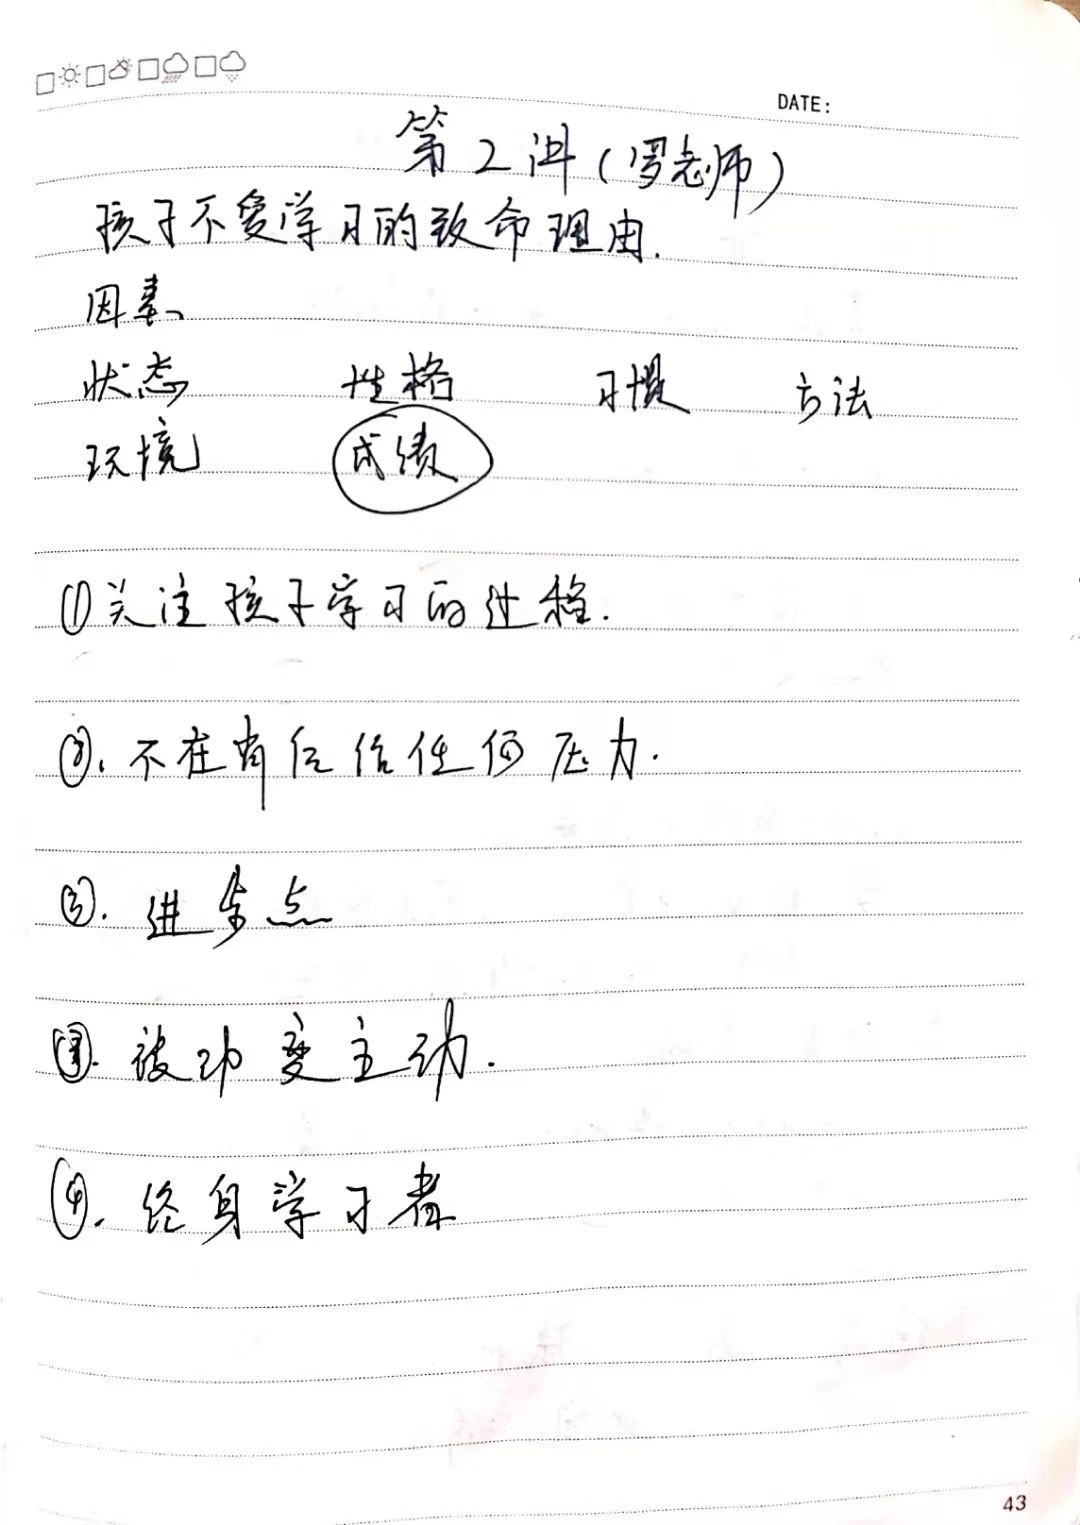 DATE:
第2讲(罗老师)
孩子不爱学习的致命理由.
因素
状态 性格 习惯 方法
环境 成绩
①关注孩子学习的过程.
②.不在背后给任何压力.
③.进步点
被动变主动.
④.终身学习者
43